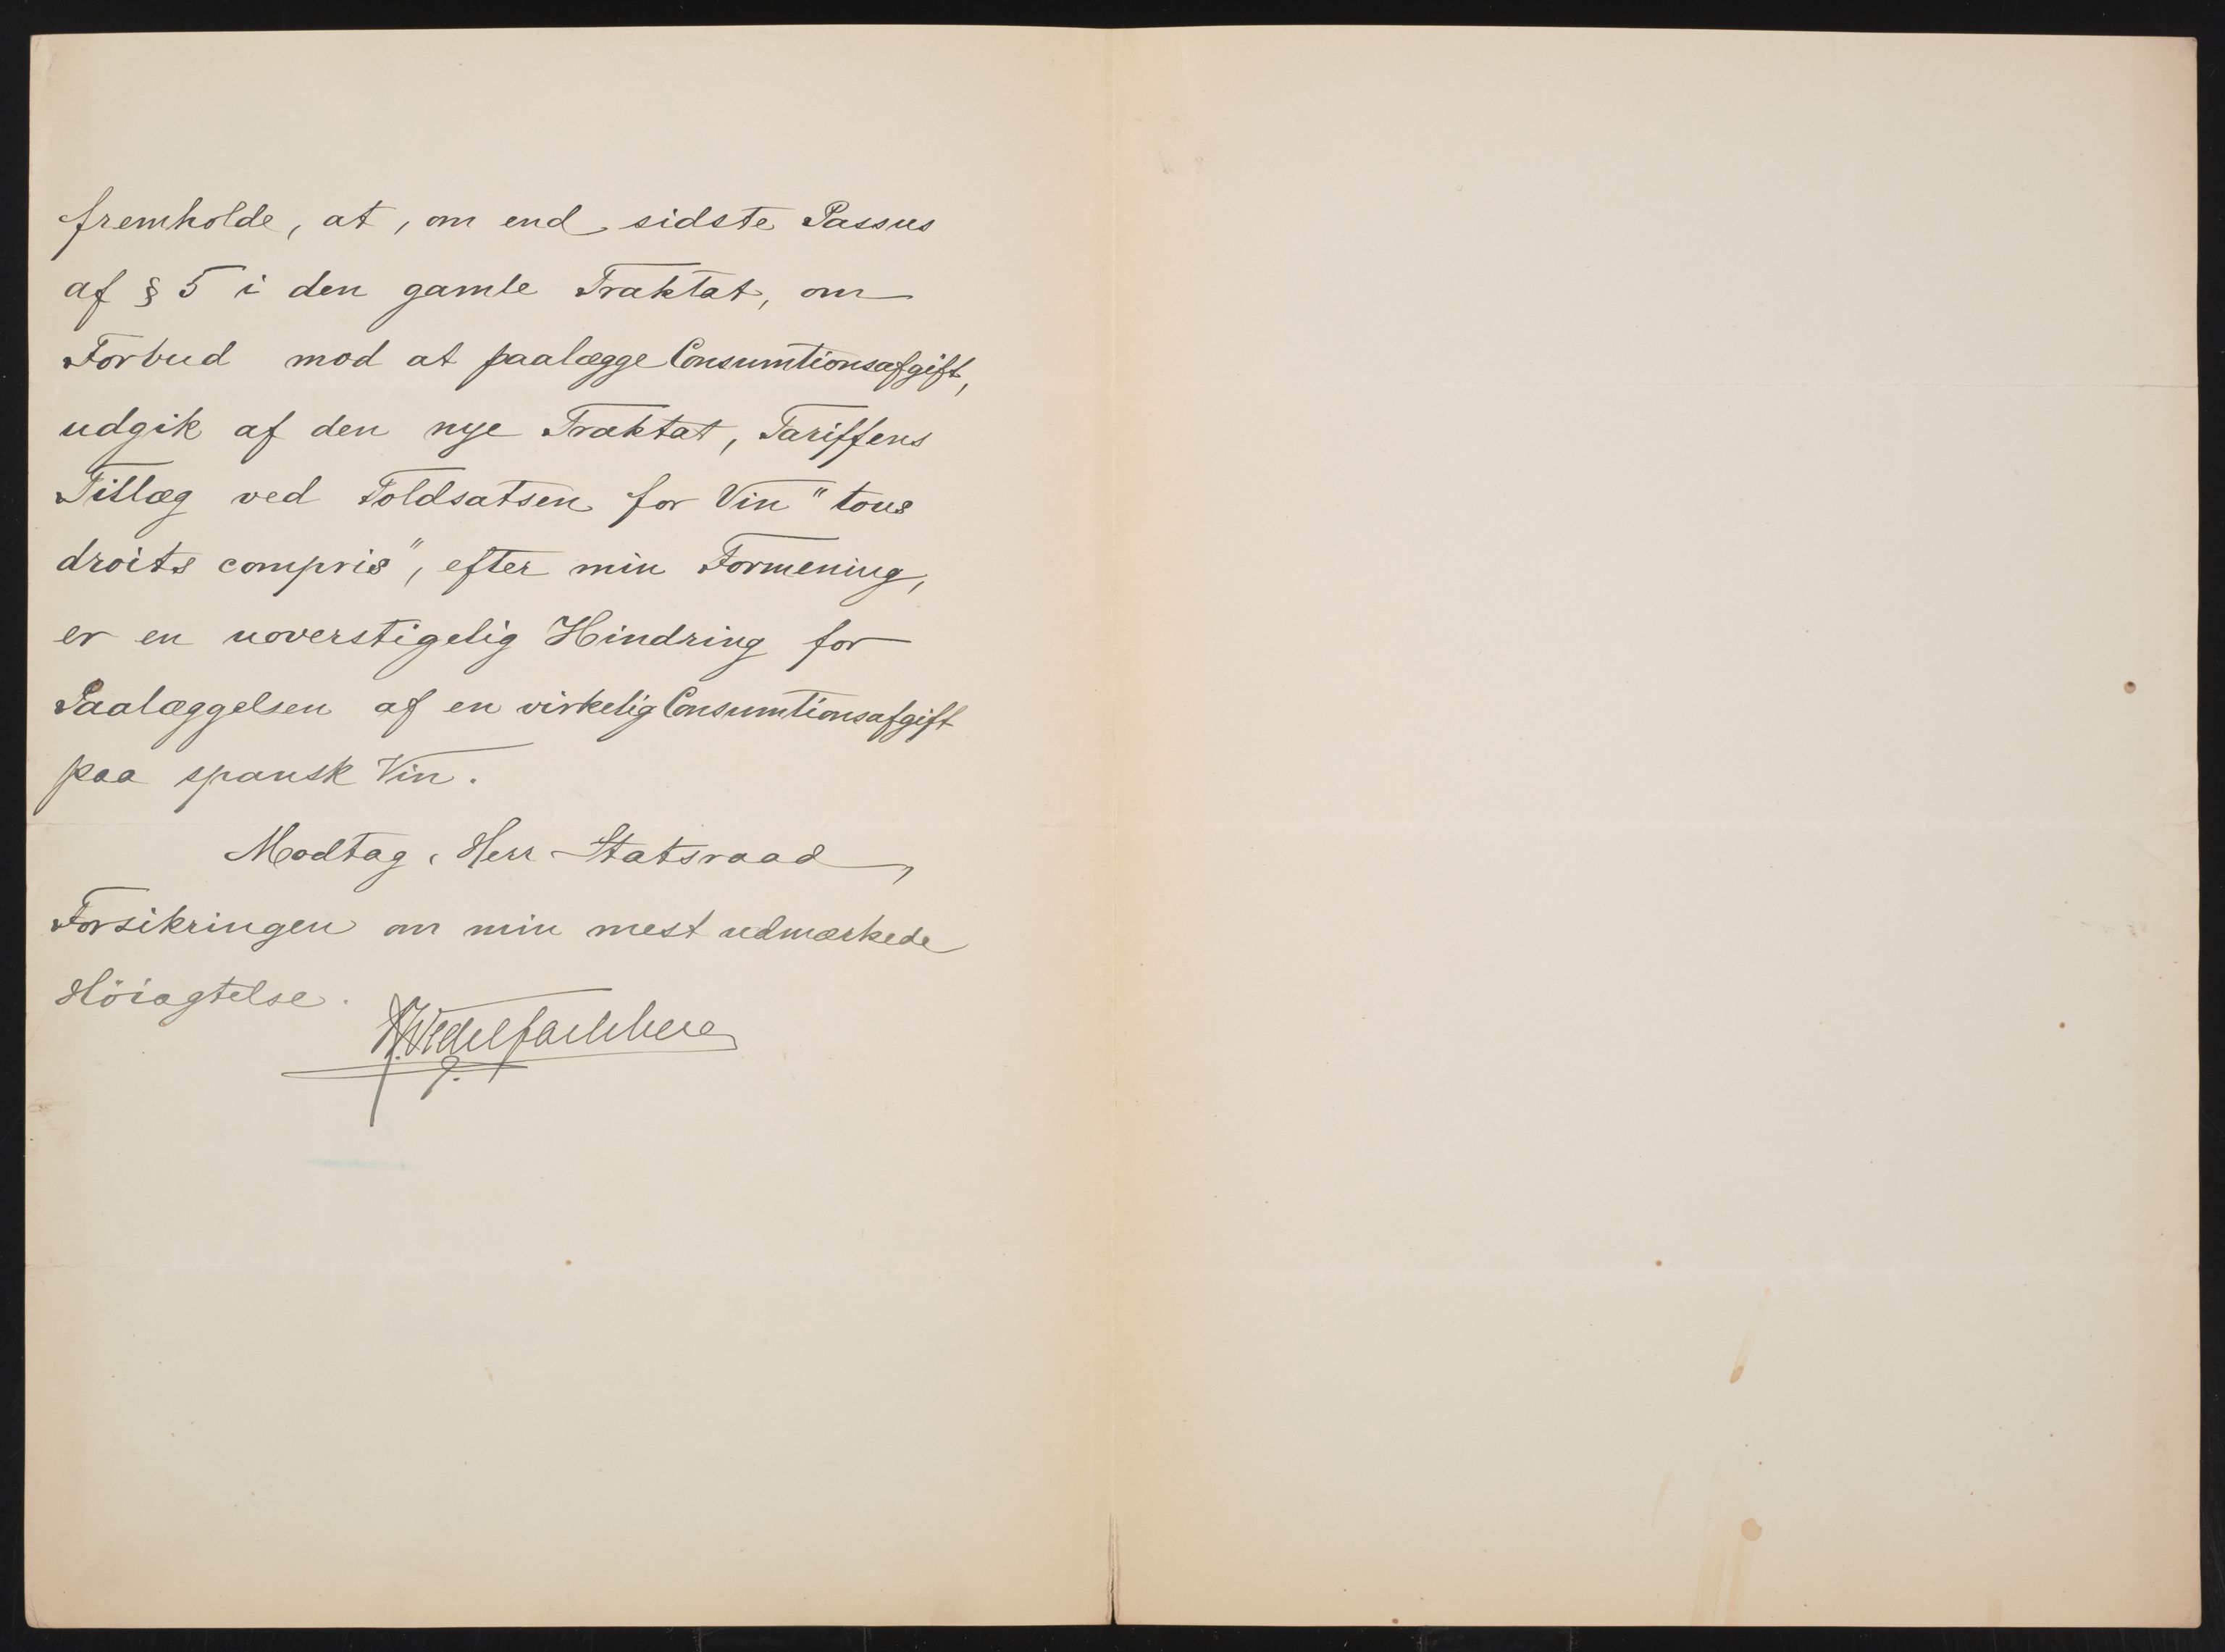 fremholde, at, om end sidste Passus
af § 5 i den gamle Traktat, om
Forbud mod at paalægge Consumtionsafgift,
udgik af den nye Traktat, Tariffens
Tillæg ved Toldsatsen for Vin "tous
droits compris", efter min Formening,
er en uoverstigelig Hindring for
Paalæggelsen af en virkelig Consumtionsafgift
paa spansk Vin.
Modtag, Herr Statsraad,
Forsikringen om min mest udmærkede
Höiagtelse.
Wedel Jarlsberg